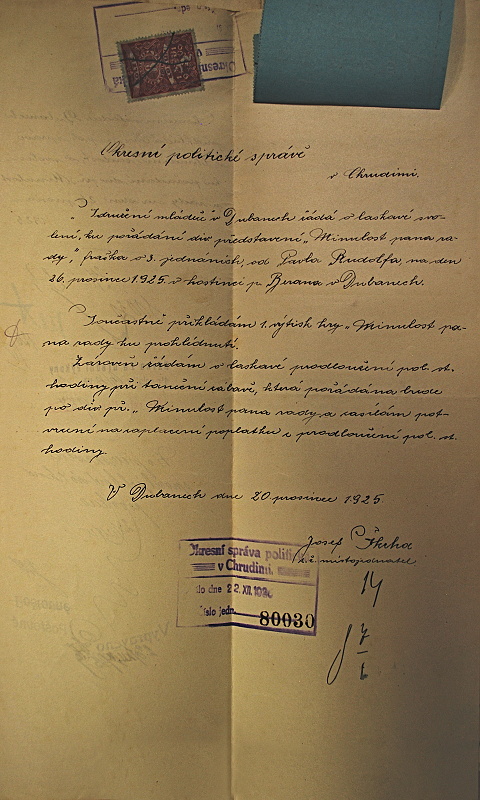 Okresní politické správě
v Chrudimi.
Sdružení mládeže v Dubanech žádá o laskavé svo-
lení, ku pořádání div. představení „Minulost pana ra-
dy", fraška o 3. jednáních, od Pavla Rudolfa, na den
26. prosince 1925. v hostinci p. Berana v Dubanech.
Současně přikládám 1. výtisk hry „Minulost pa-
na rady ku pohlédnutí.
Zároveň žádám o laskavé prodloužení pol. st.
hodiny při taneční zábavě, která pořádána bude
po div. př. „Minulost pana rady, a zasílám pot-
vrzení na zaplacení poplatku z prodloužení pol. st.
hodiny.
V Dubanech dne 20. prosince 1925.
Josef
t. č. místojednatel
Okresní správa politi
v Chrudimi.
lo dne 22. XII. 192
číslo jedn. 80030
14
7
6